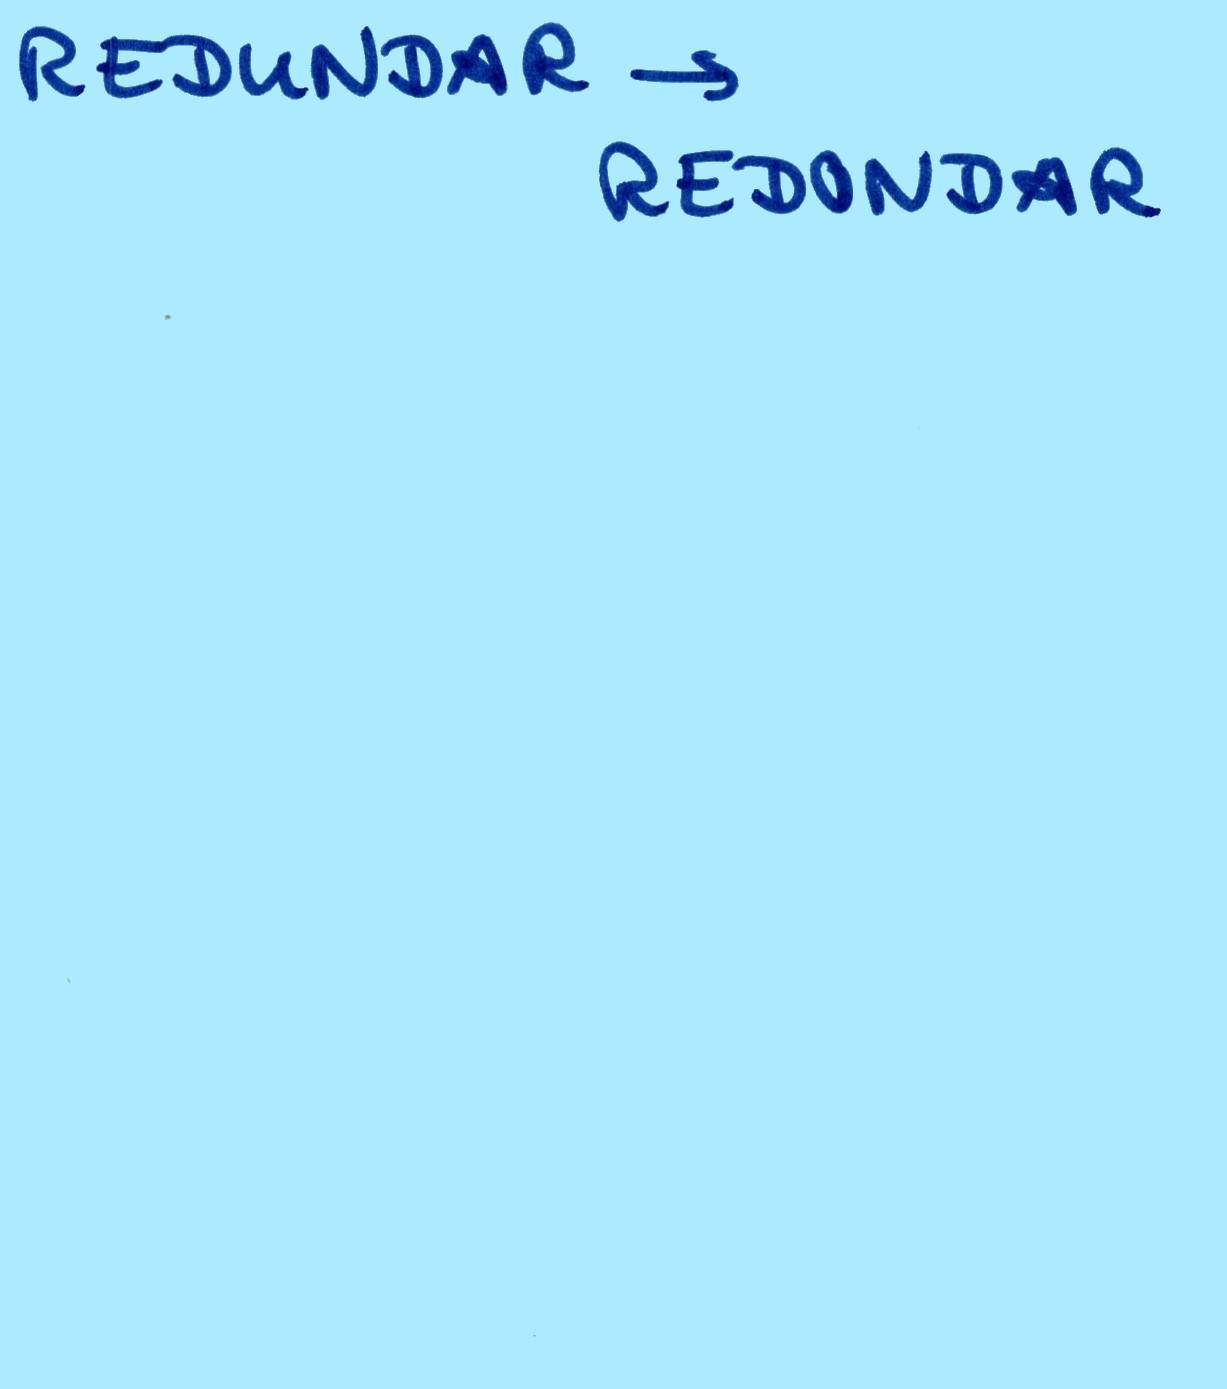 REDUNDAR →
REDONDAR